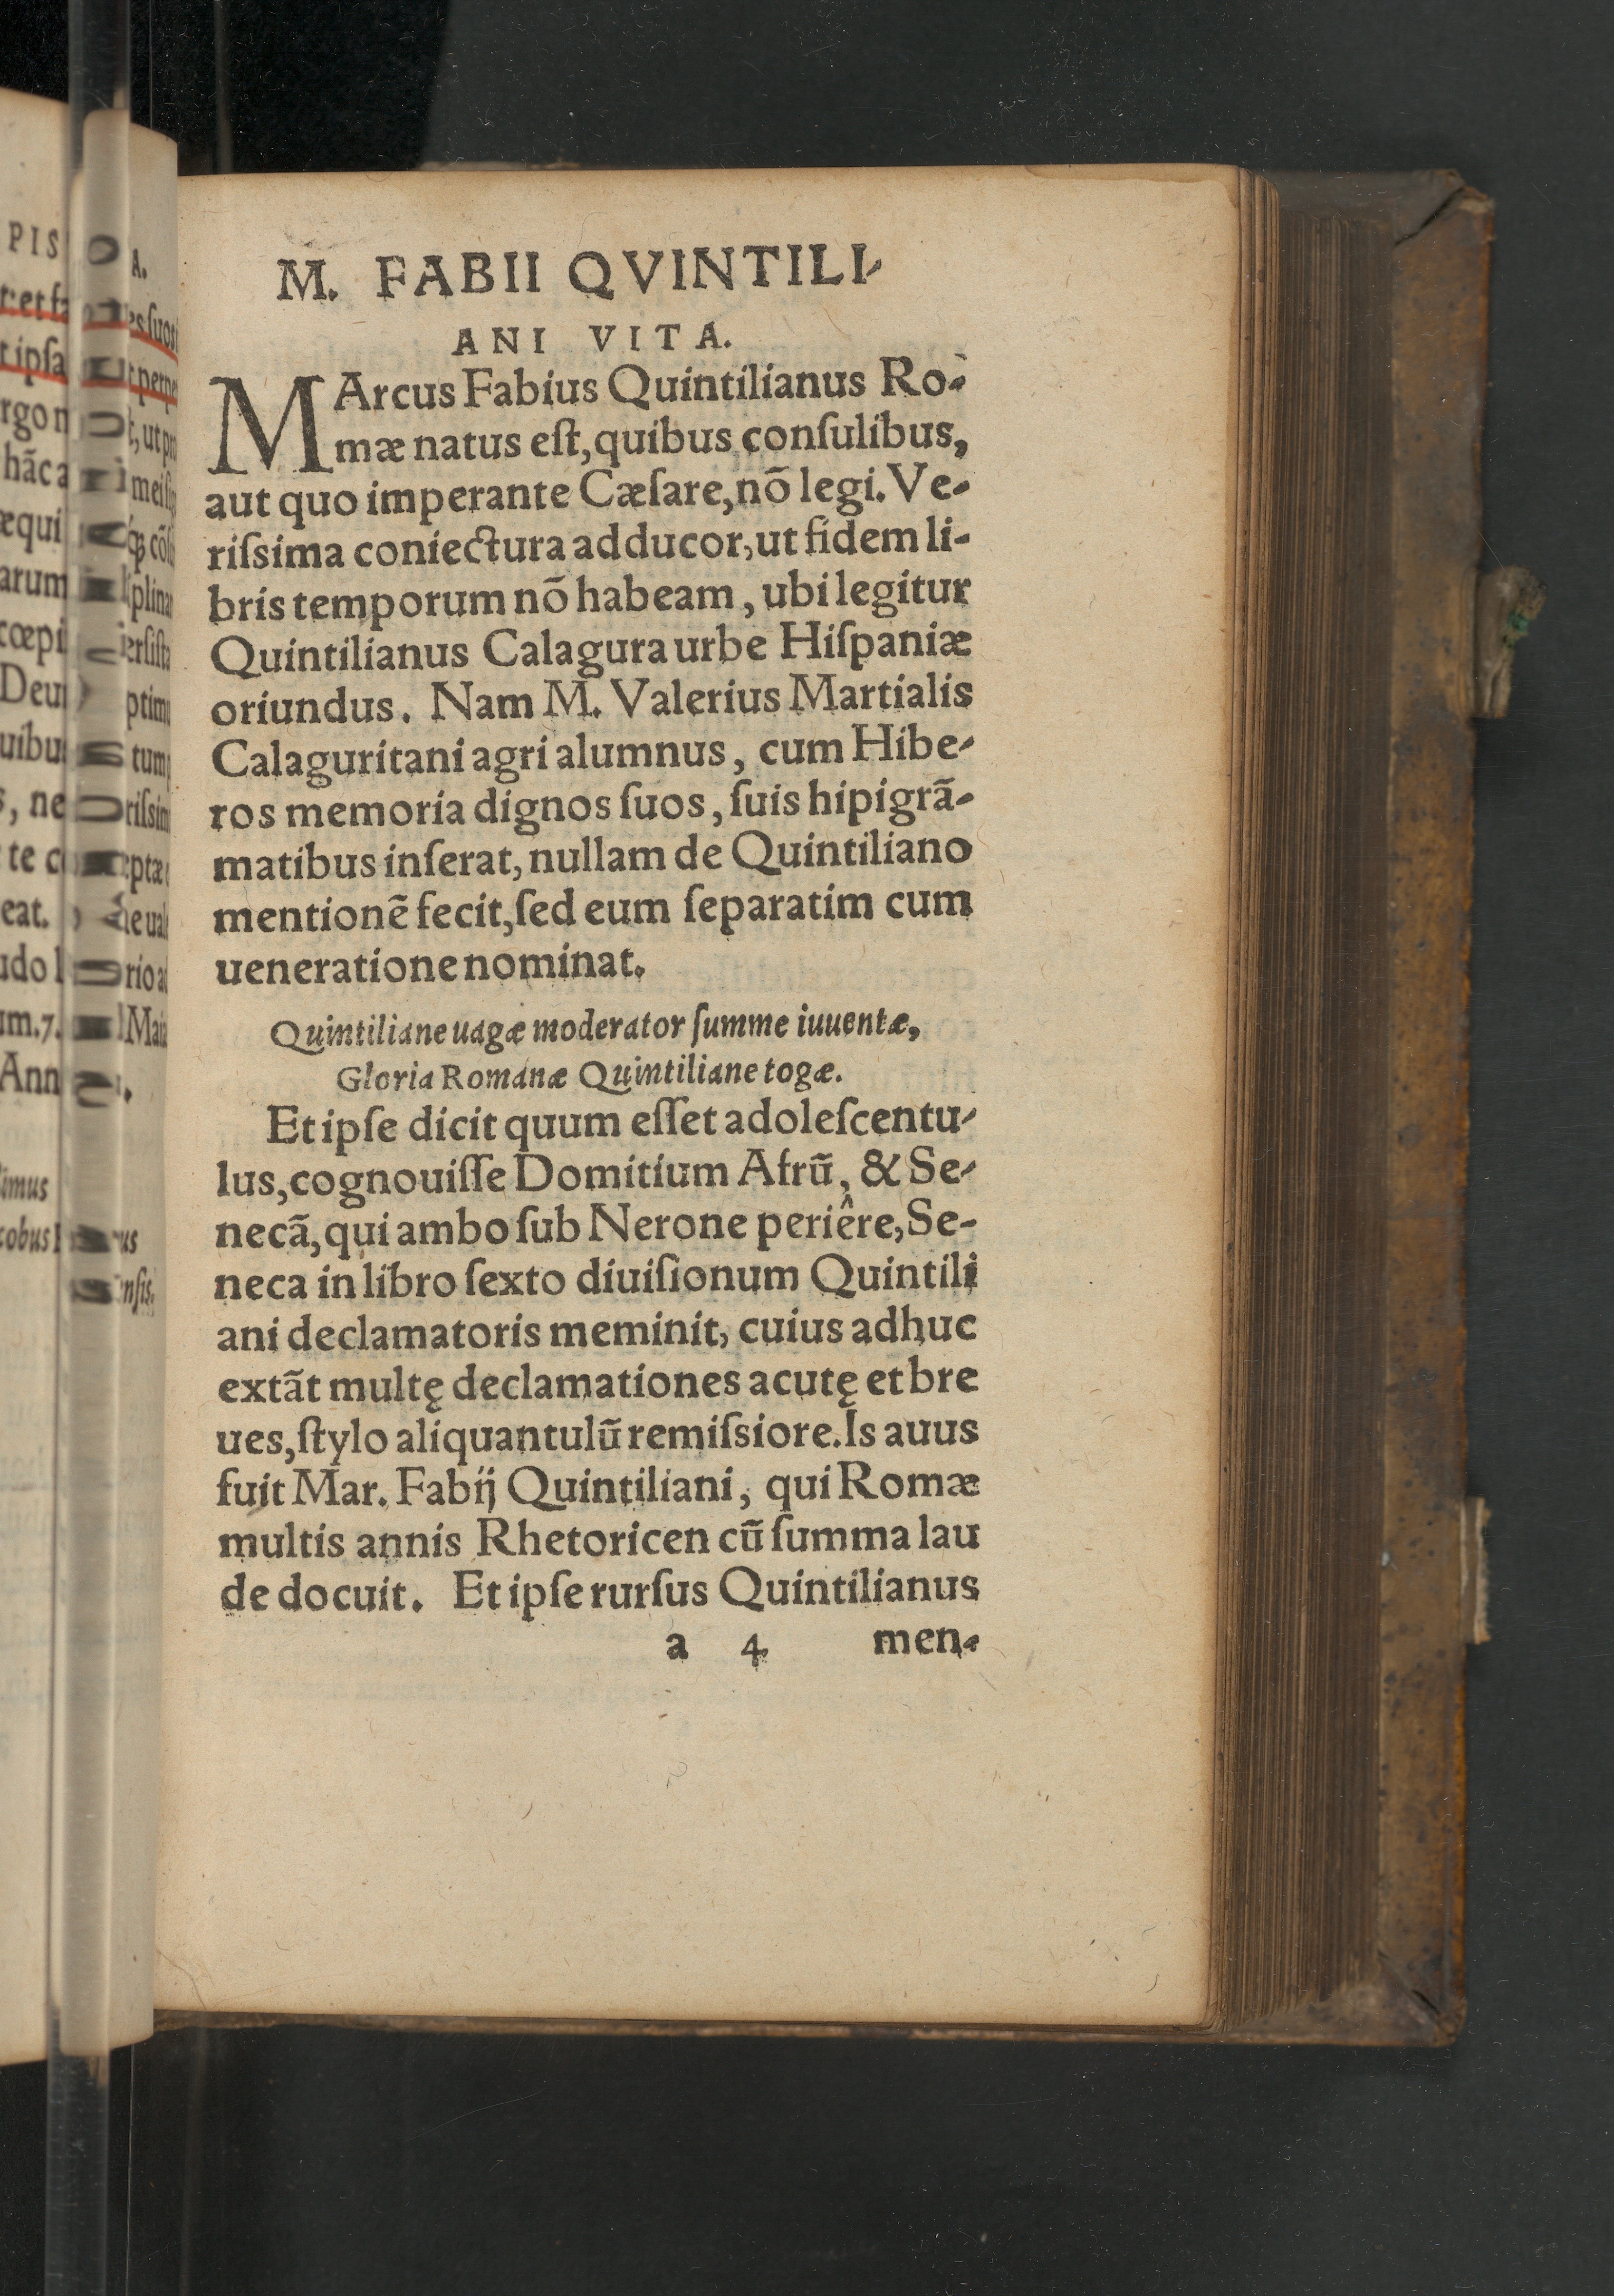 M. FABII QVINTILI-
ANI VITA.
MArcus Fabius Quintilianus Ro-
mæ natus eſt, quibus conſulibus,
aut quo imperante Cæſare, nō legi. Ve-
riſsima coniectura adducor, ut fidem li-
bris temporum nō habeam, ubi legitur
Quintilianus Calagura urbe Hiſpaniæ
oriundus. Nam M. Valerius Martialis
Calaguritani agri alumnus, cum Hibe-
ros memoria dignos ſuos, ſuis hipigrā-
matibus inſerat, nullam de Quintiliano
mentionē fecit, ſed eum ſeparatim cum
ueneratione nominat.
Quintiliane uagæ moderator ſumme iuuentæ,
Gloria Romanæ Quintiliane togæ.
Et ipſe dicit quum eſſet adoleſcentu-
lus, cognouiſſe Domitium Afrū, & Se-
necā, qui ambo ſub Nerone periêre, Se-
neca in libro ſexto diuiſionum Quintili
ani declamatoris meminit, cuius adhuc
extāt multę declamationes acutę et bre
ues, ſtylo aliquantulū remiſsiore. Is auus
fuit Mar. Fabij Quintiliani, qui Romæ
multis annis Rhetoricen cū ſumma lau
de docuit. Et ipſe rurſus Quintilianus
a 4 men-